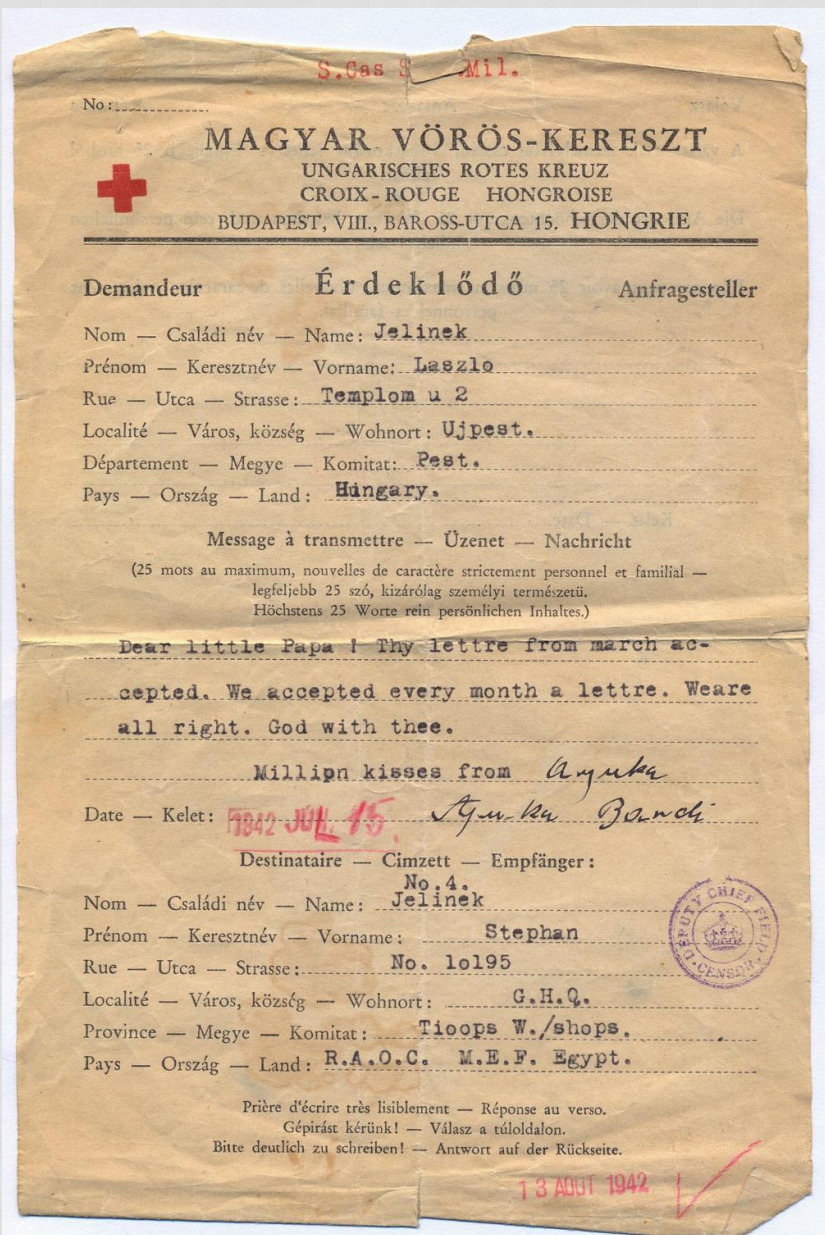 S.Cas S Mil.
No:
MAGYAR VÖRÖS-KERESZT
UNGARISCHES ROTES KREUZ
CROIX-ROUGE HONGROISE
BUDAPEST, VIII., BAROSS-UTCA 15. HONGRIE
Demandeur Érdeklődő Anfragesteller
Nom — Családi név — Name: Jelinek
Prénom — Keresztnév — Vorname: Laszlo
Rue — Utca — Strasse: Templom u 2
Localité — Város, község — Wohnort: Ujpest.
Département — Megye — Komitat: Pest.
Pays — Ország — Land: Hungary.
Message à transmettre — Üzenet — Nachricht
(25 mots au maximum, nouvelles de caractère strictement personnel et familial —
legfeljebb 25 szó, kizárólag személyi természetü.
Höchstens 25 Worte rein persönlichen Inhaltes.)
Dear little Papa ! Thy lettre from march ac-
cepted. We accepted every month a lettre. Weare
all right. God with thee.
Millipn kisses from Anyuka
Date — Kelet: 1942 JÚL 15. Bandi
Destinataire — Cimzett — Empfänger:
No.4.
Nom — Családi név — Name: Jelinek
Prénom — Keresztnév — Vorname: Stephan
Rue — Utca — Strasse: No. lol95
Localité — Város, község — Wohnort: G.H.Q.
Province — Megye — Komitat: Tioops W./shops.
Pays — Ország — Land: R.A.O.C. M.E.F. Egypt.
DEPUTY CHIEF FIELD CENSOR
Prière d'écrire très lisiblement — Réponse au verso.
Gépirást kérünk! — Válasz a túloldalon.
Bitte deutlich zu schreiben! — Antwort auf der Rückseite.
13 AOUT 1942